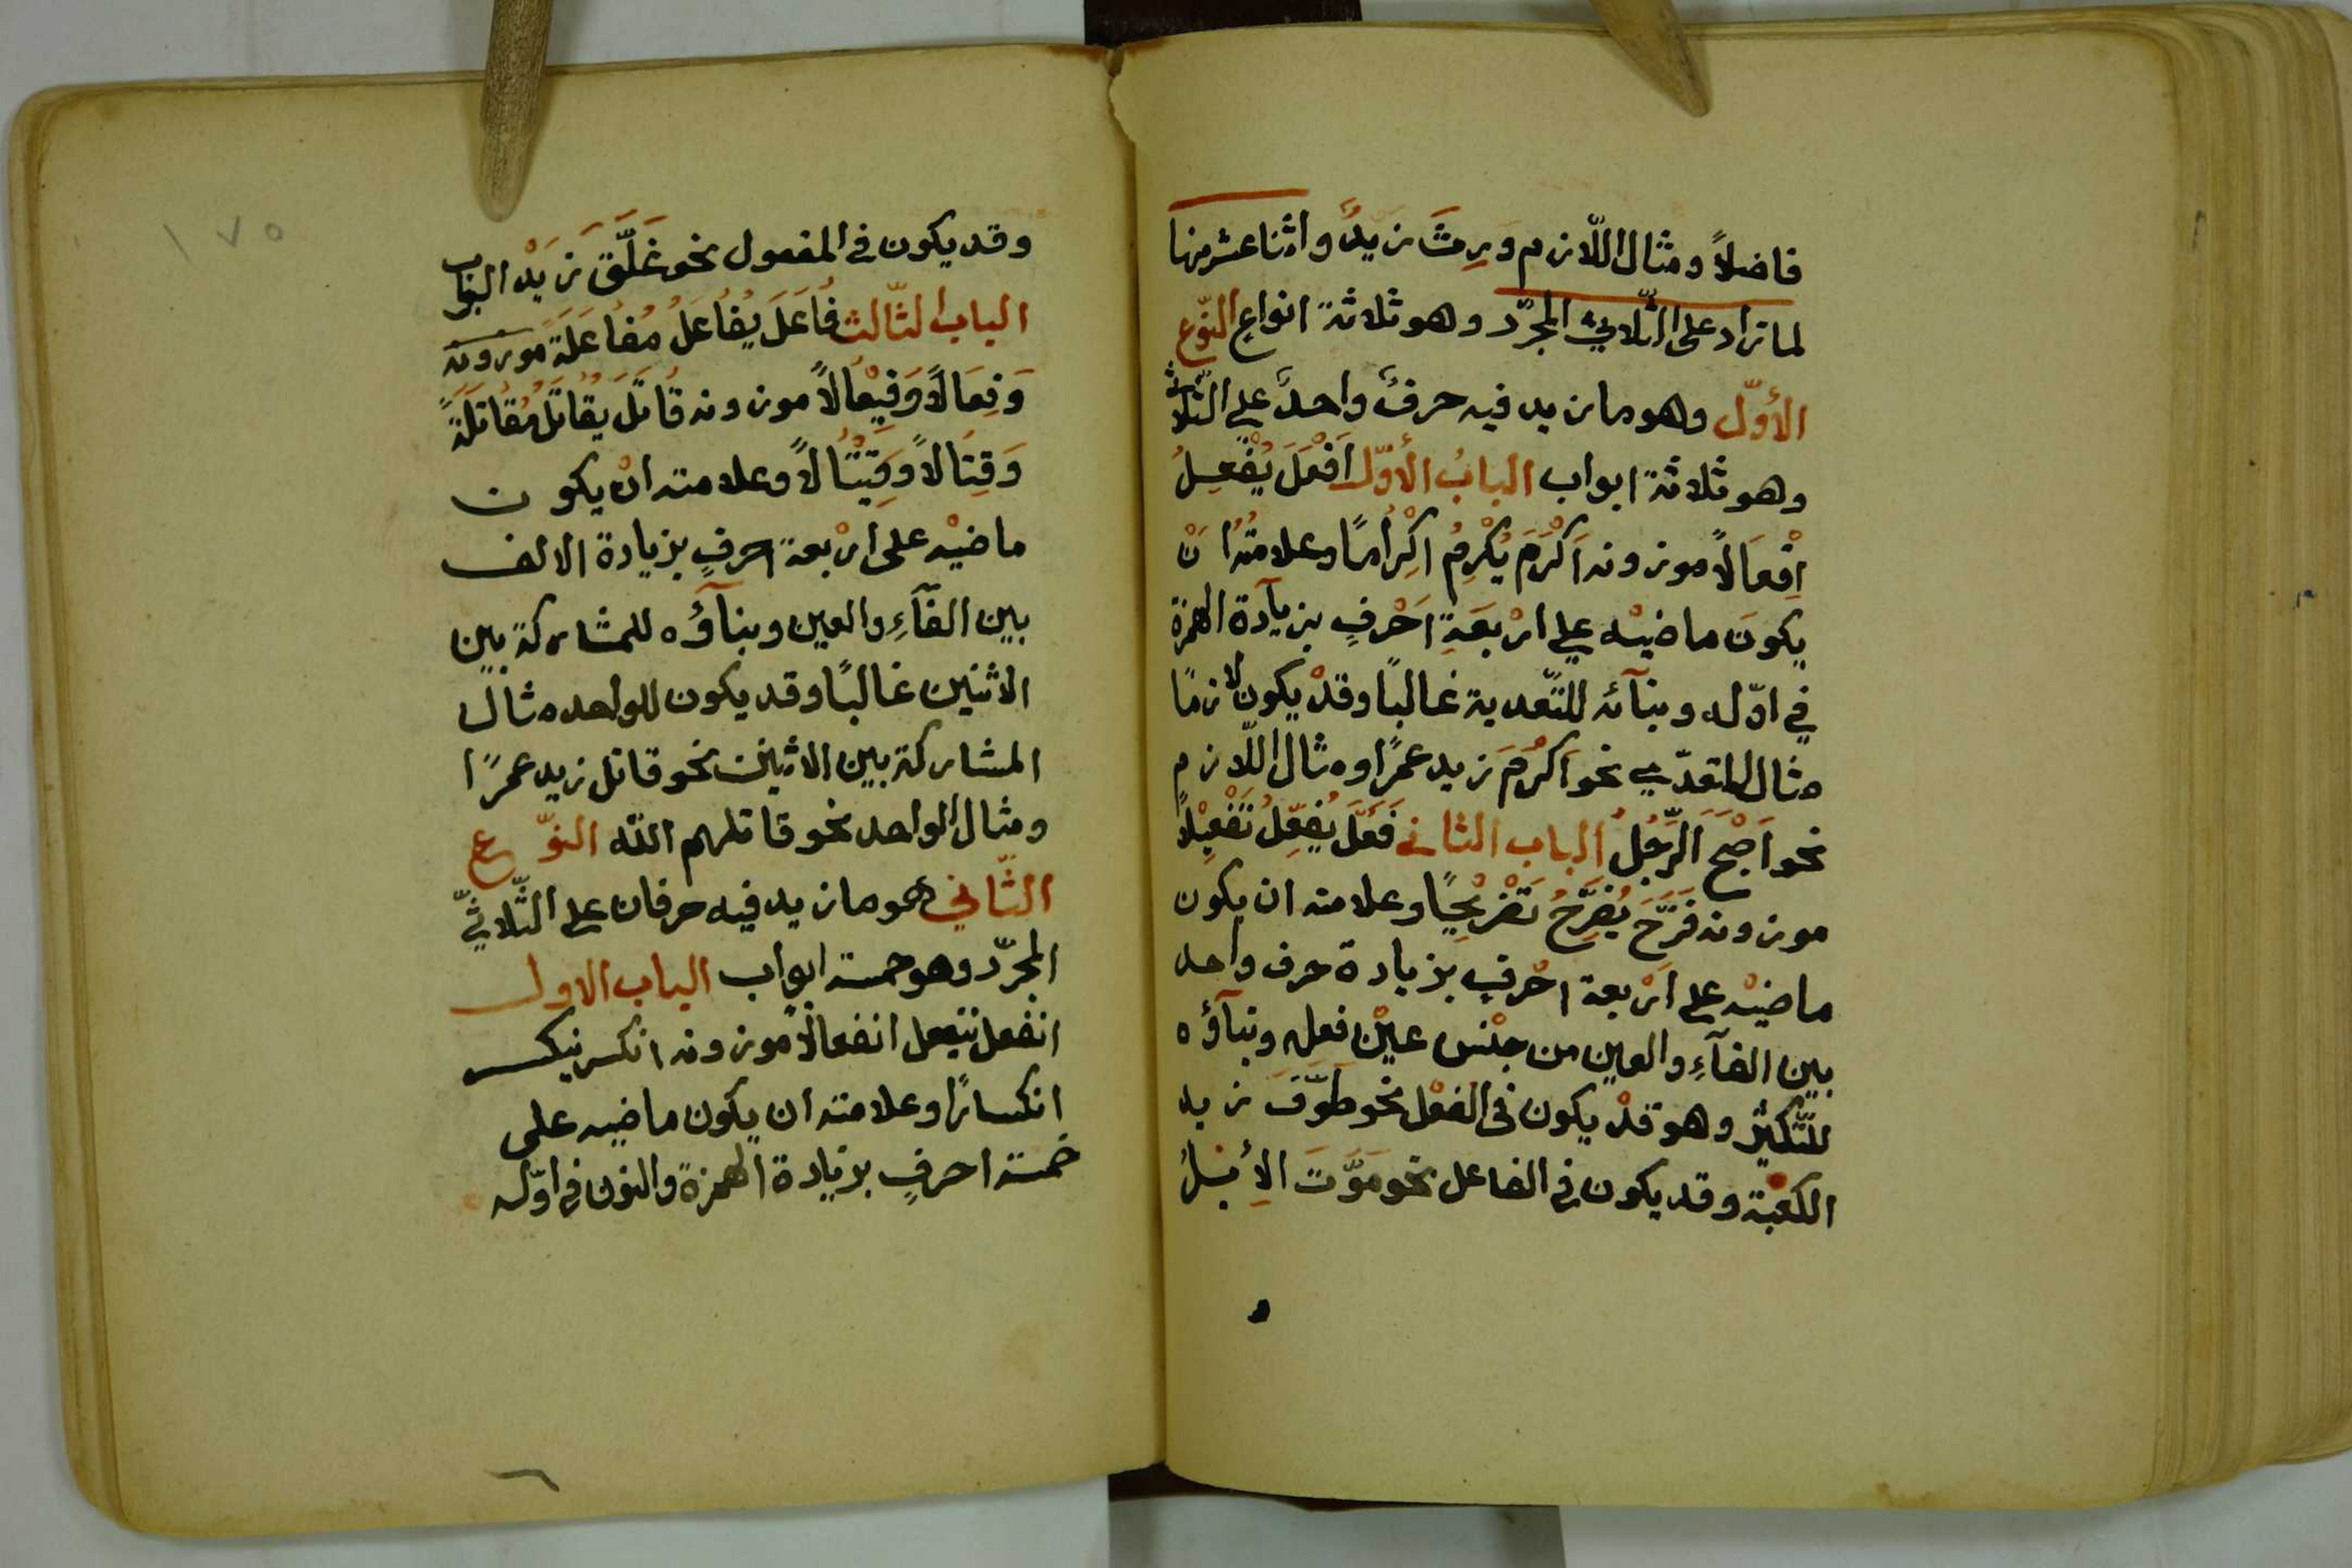 فاضلاً ومثال اللّازم وَرِثَ زيدٌ واثنا عشر منها
لما زاد على الثّلاثيّ المجرّد وهو ثلاثة انواع النّوع
الأوّل وهو ما زيد فيه حرفٌ واحدٌ علي الثّلاثي
وهو ثلاثة ابواب البابُ الأوّل اَفْعَلَ يُفْعِلُ
اِفْعَالاً موزونه اَكْرَمَ يُكْرِمُ اِكْرَامًا وعلامتُهُ اَنْ
يكونَ ماضيْه علي ارْبعَةِ اَحْرفٍ بزيآدة الهمزة
في اوّله وبنآئه للتّعدية غالبًا وقدْ يكون لازمًا
مثال المتعدّي نحو اَكْرَمَ زيد عمرًا ومثال اللّازم
نحو اَصْبَحَ الرَّجُلُ الباب الثاني فَعَّلَ يُفَعِّلُ تَفْعِيْلاً
موزونه فَرَّحَ يُفَرِّحُ تَفْرِيْحًا وعلامته ان يكون
ماضيْه على ارْبعة احْرفٍ بزيادة حرف واحد
بين الفآءِ والعين من جنْس عيْن فعله وبنآؤه
للتّكثير وهو قدْ يكون في الفعْل نحو طَوَّفَ زيد
الكعْبة وقد يكون في الفاعل نحو مَوَّتَ الاِبِلُ
١٧٥
وقد يكون في المفعول نحو غَلَّقَ زَيْد الباب
الباب الثّالث فَاعَلَ يُفَاعِلُ مُفَاعَلَةً موزونه
وَفِعَالاً وَفِيْعَالاً موزونه قَاتَلَ يقَاتلُ مُقَاتَلَةً
وَقِتَالاً وَقِيْتَالاً وعلامته انْ يكون
ماضيْه على ارْبعة احرفٍ بزيادة الالف
بين الفآءِ والعين وبنآؤُه للمشاركة بين
الاثنين غالبًا وقد يكون للواحد مثال
المشاركة بين الاثنين نحو قاتل زيد عمرًا
ومثال الواحد نحو قاتلهم اللّه النّوع
الثّاني هو ما زيد فيه حرفان على الثّلاثيّ
المجرّد وهو خمسة ابواب الباب الاول
انفعل ينفعل انفعالاً موزونه انكسر ينكسر
انكسارًا وعلامته ان يكون ماضيه على
خمسة احرفٍ بزيادة الهمزة والنون في اوّله